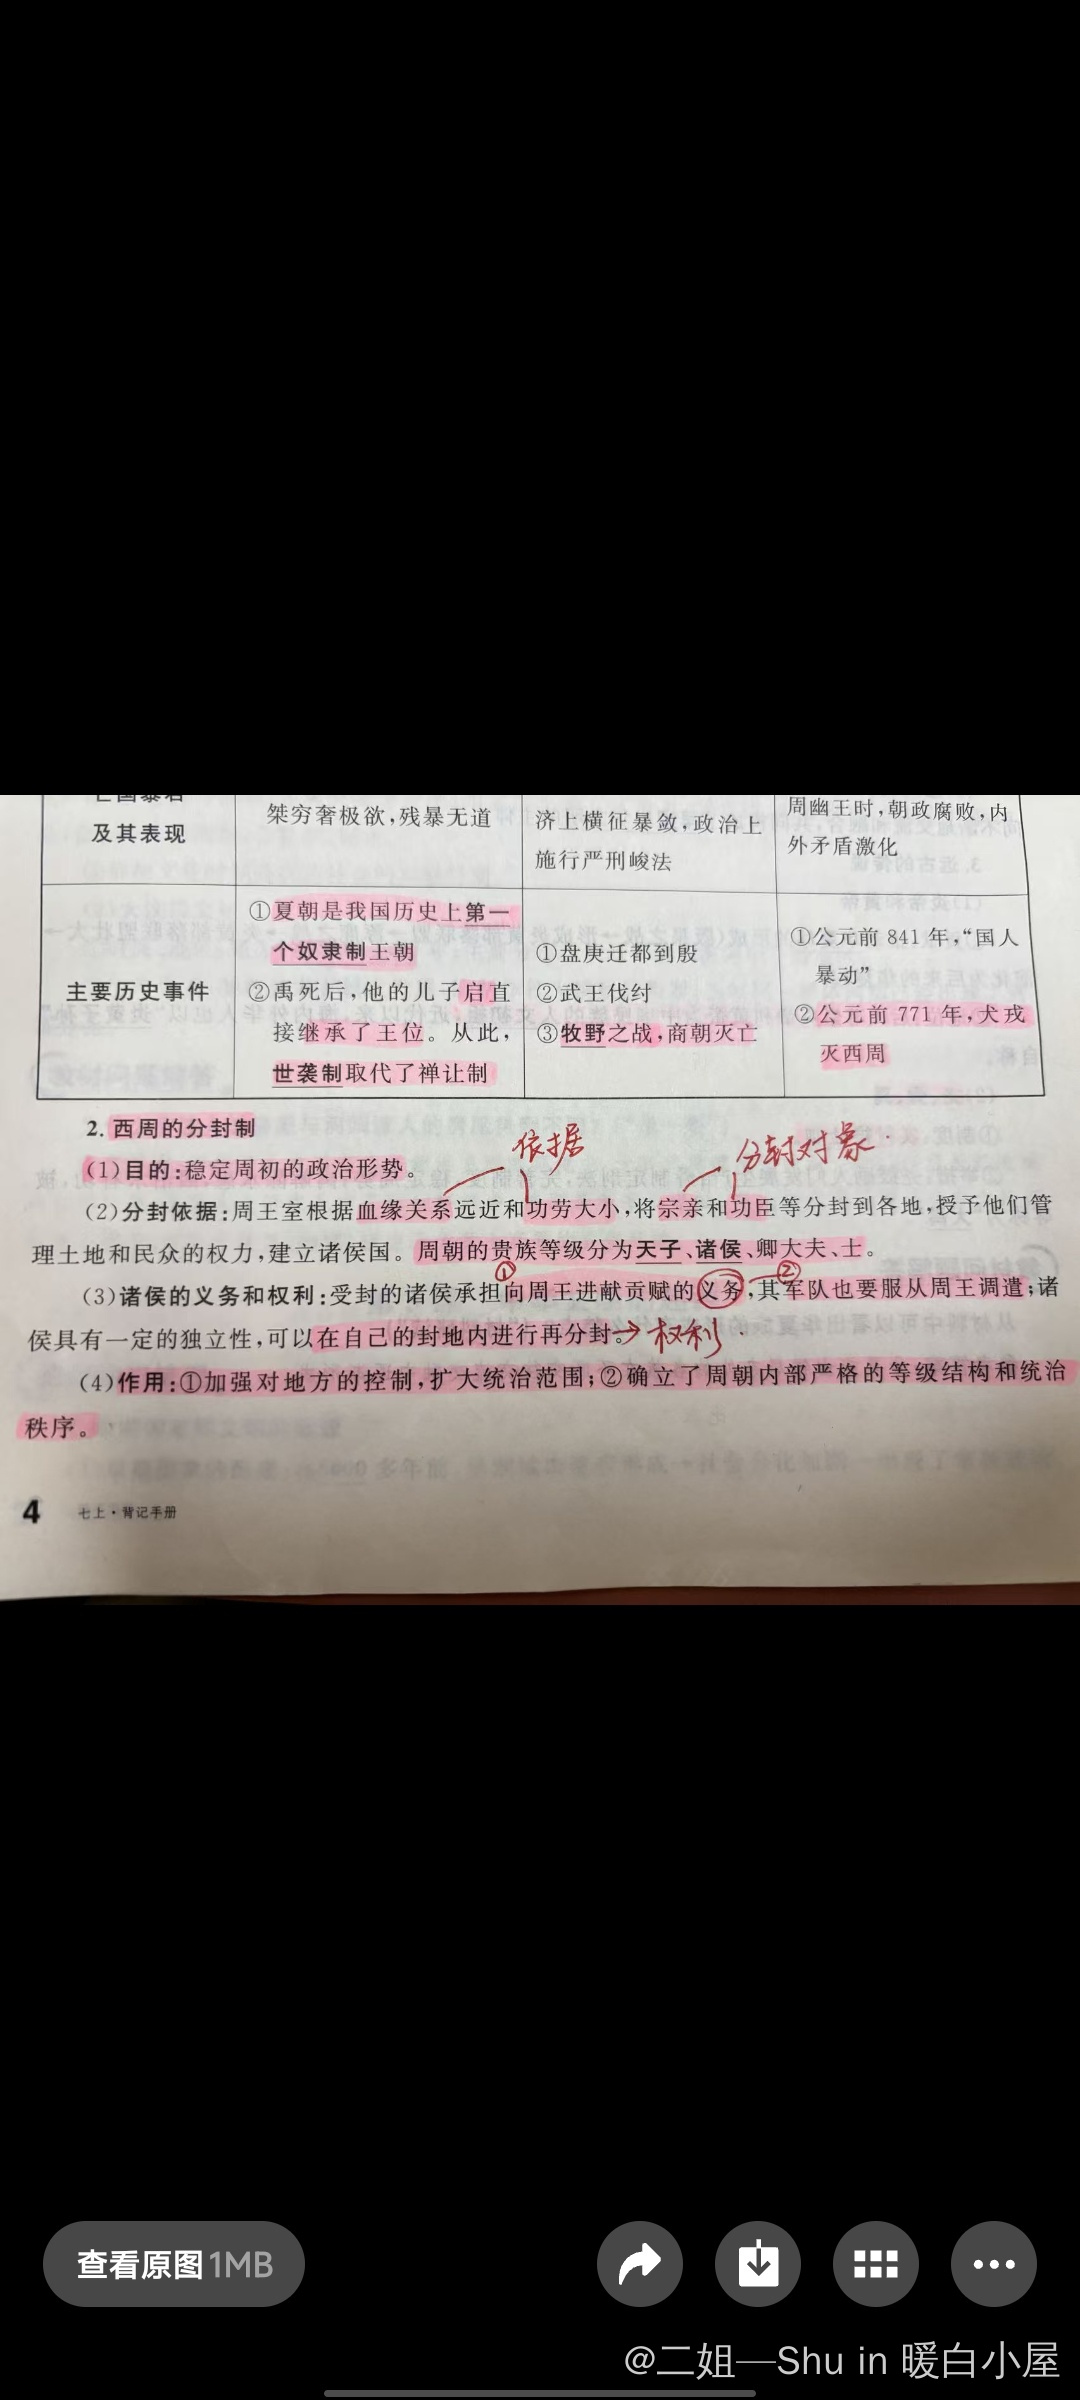 亡国暴君
及其表现
桀穷奢极欲,残暴无道
济上横征暴敛,政治上
施行严刑峻法
周幽王时,朝政腐败,内
外矛盾激化
主要历史事件
①夏朝是我国历史上第一
个奴隶制王朝
②禹死后,他的儿子启直
接继承了王位。从此,
世袭制取代了禅让制
①盘庚迁都到殷
②武王伐纣
③牧野之战,商朝灭亡
①公元前 841 年,“国人
暴动”
②公元前 771 年,犬戎
灭西周
2. 西周的分封制
依据
分封对象
(1)目的:稳定周初的政治形势。
(2)分封依据:周王室根据血缘关系远近和功劳大小,将宗亲和功臣等分封到各地,授予他们管
理土地和民众的权力,建立诸侯国。周朝的贵族等级分为天子、诸侯、卿大夫、士。
① ②
(3)诸侯的义务和权利:受封的诸侯承担向周王进献贡赋的义务,其军队也要服从周王调遣;诸
侯具有一定的独立性,可以在自己的封地内进行再分封。→权利
(4)作用:①加强对地方的控制,扩大统治范围;②确立了周朝内部严格的等级结构和统治
秩序。
4 七上·背记手册
查看原图 1MB
@二姐—Shu in 暖白小屋